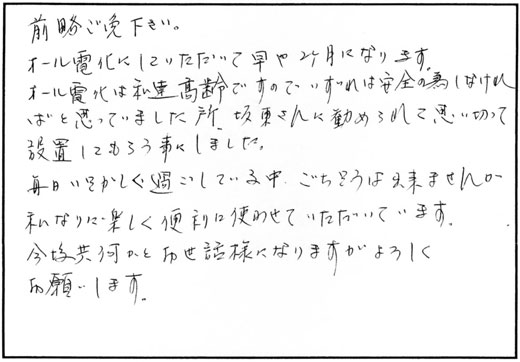 前略ご免下さい。
オール電化にしていただいて早や2ヶ月になります。
オール電化は私達高齢ですのでいずれは安全の為しなけれ
ばと思っていました所、坂東さんに勧められて思い切って
設置してもらう事にしました。
毎日いそがしく過ごしている中、ごちそうは出来ませんが
私なりに楽しく便利に使わせていただいています。
今後共何かと御世話様になりますがよろしく
御願いします。